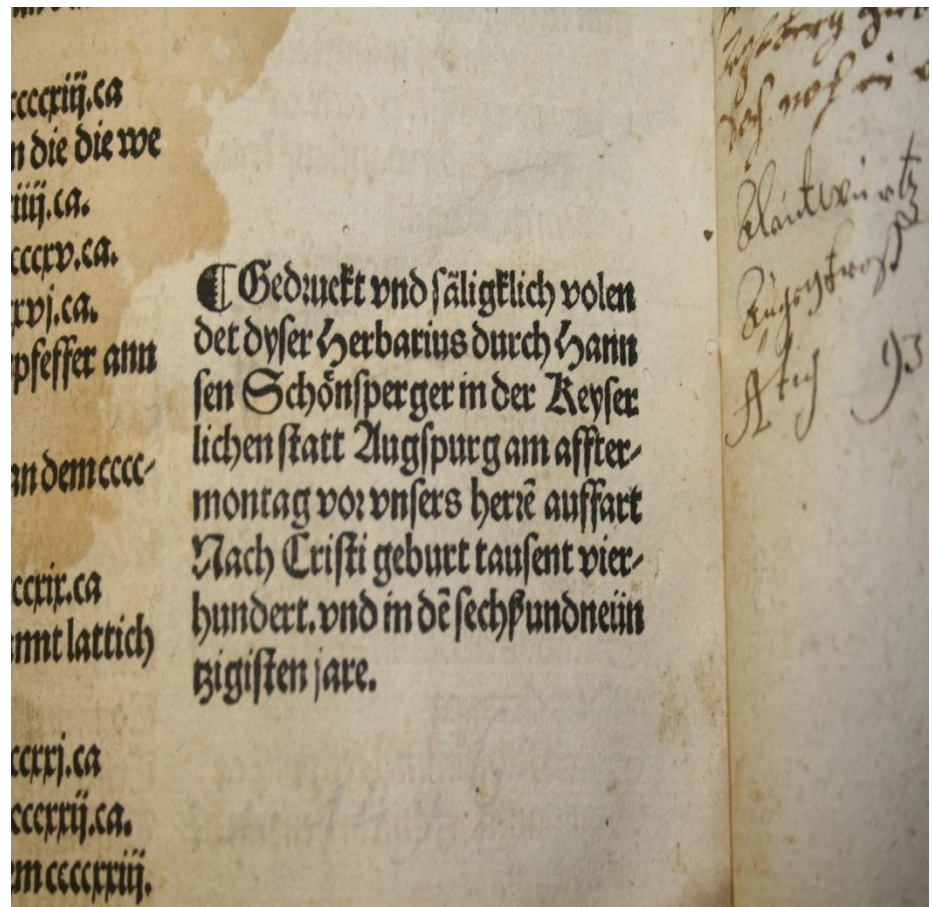 ccccxiij.ca
n die die we
iiij.ca.
ccccxv.ca.
xvj.ca.
pfeffer ann
an dem cccc⸗
ccxix.ca
nnt lattich
ccxxj.ca
ccccxxij.ca.
em ccccxxiij.
⸿ Gedruckt vnd säligklich volen
det dyser Herbarius durch Hann
sen Schönsperger in der Keyser
lichen statt Augspurg am affter⸗
montag vor vnsers herrē auffart
Nach Cristi geburt tausent vier⸗
hundert. vnd in dē sechßundneün
tzigisten jare.
noch
93